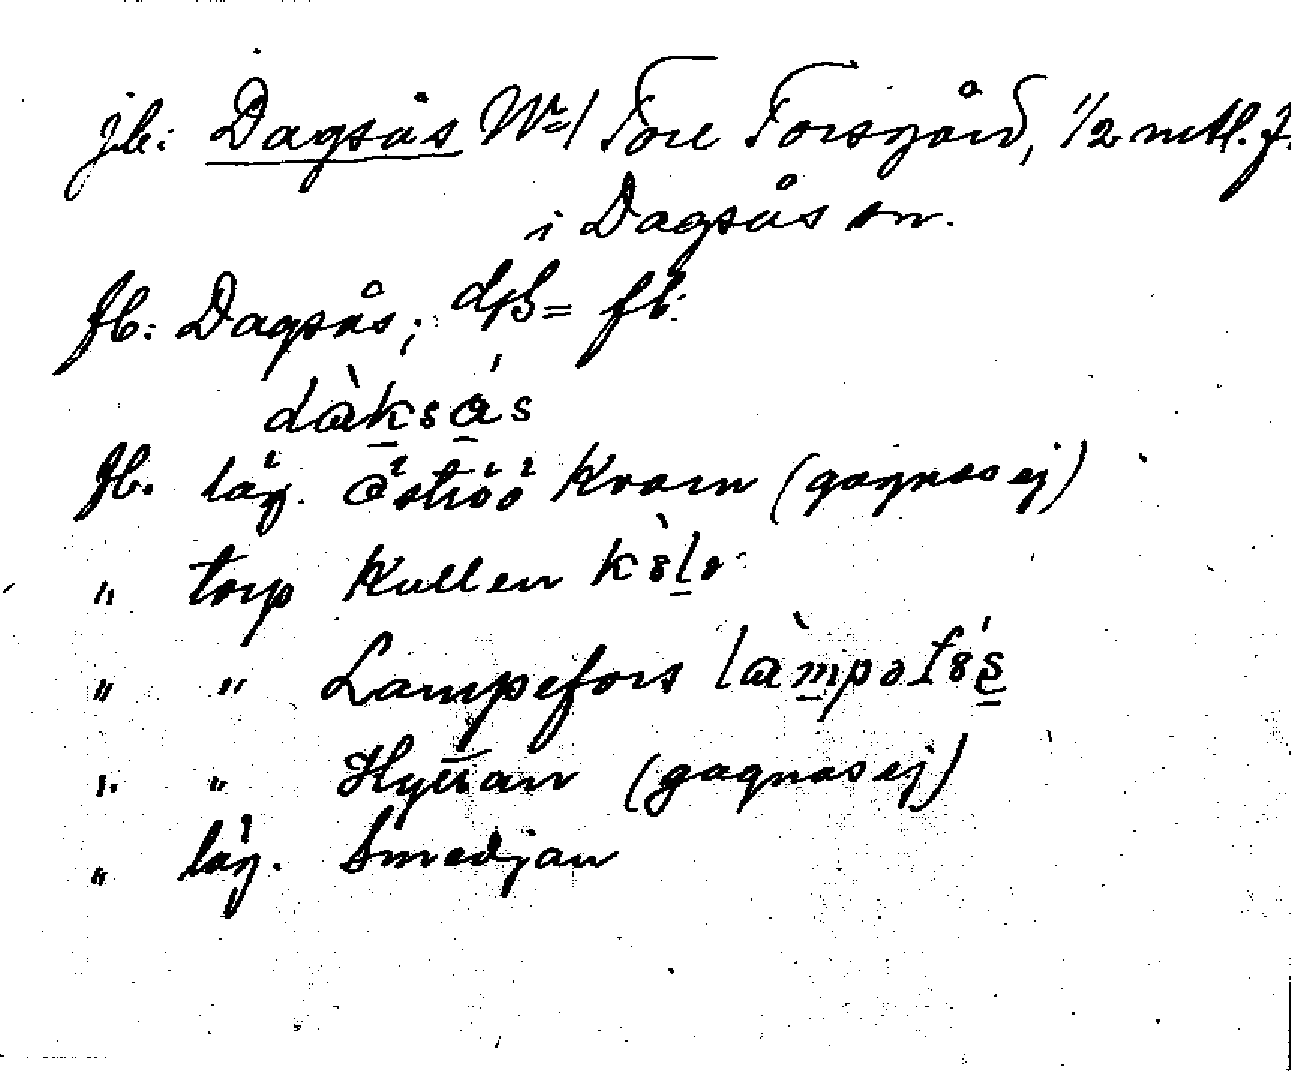 jb: Dagsås No 1 Tore Torsgård, 1/2 mtl. f.
i Dagsås sn.
fb: Dagsås; dʃβ= fb:
dàksås
fb. läg. Kvarn (gagnas ej)
" torp Kullen
" " Lampefors làmpəfós
" " Hyttan (gagnas ej)
" läg. Smedjan